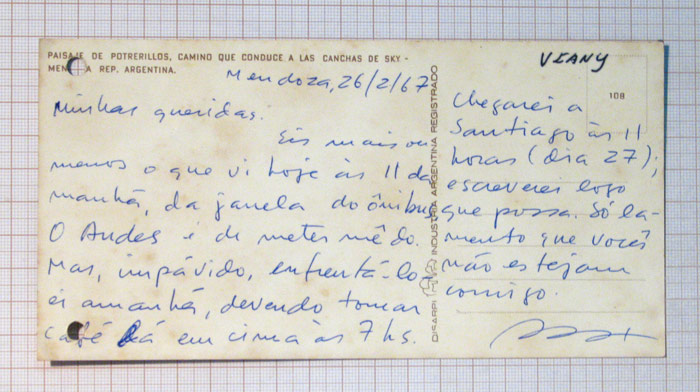 PAISAJE DE POTRERILLOS, CAMINO QUE CONDUCE A LAS CANCHAS DE SKY -
MENDOZA REP. ARGENTINA.
Mendoza, 26/2/67
Minhas queridas:
Eis mais ou
menos o que vi hoje às 11 da
manhã, da janela do ônibus
O Andes é de meter mêdo.
Mas, impávido, enfrentá-lo-
ei amanhã, devendo tomar
café lá em cima às 7 hs.
DISARPI INDUSTRIA ARGENTINA REGISTRADO
VIANY
108
Chegarei a
Santiago às 11
horas (dia 27);
escreverei logo
que possa. Só la-
mento que vocês
não estejam
comigo.